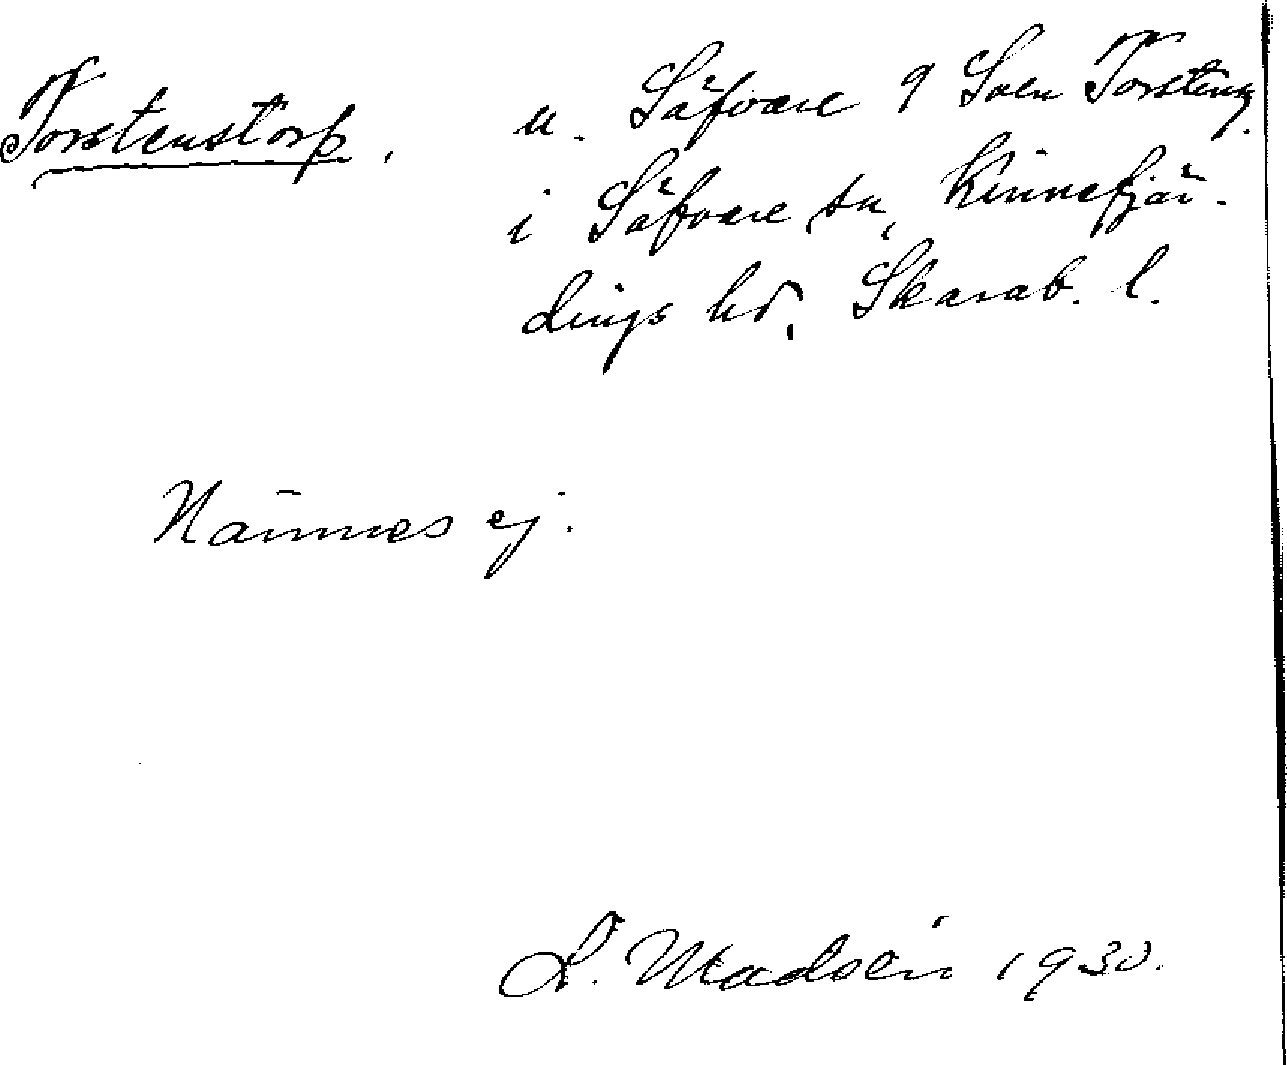 Torstenstorp, u. Säfvare 9 Sven Torsteng.
i Säfvare sn, Kinnefjär-
dings hd, Skarab. l.
Kännes ej.
L. Madsén 1930.